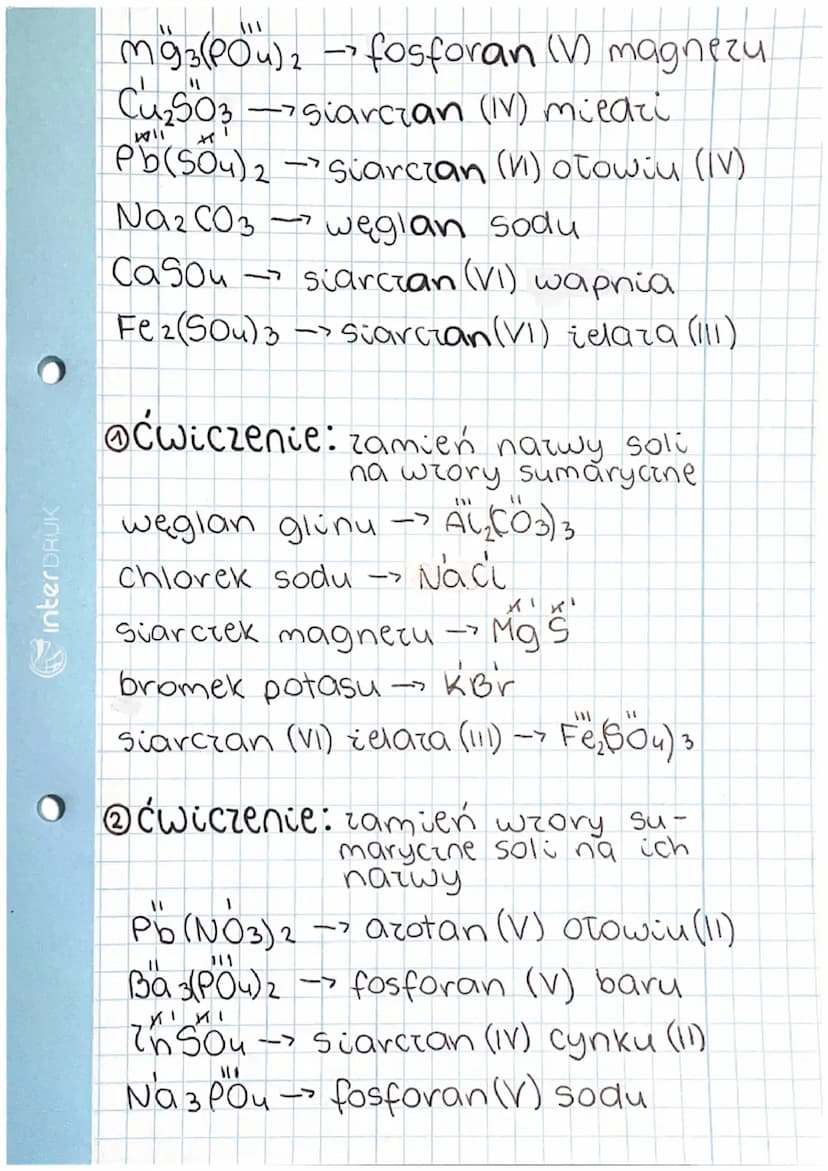 Mg₃(PO₄)₂ → fosforan (V) magnezu
Cu₂SO₃ → siarczan (IV) miedzi
Pb(SO₄)₂ → siarczan (VI) ołowiu (IV)
Na₂CO₃ → węglan sodu
CaSO₄ → siarczan (VI) wapnia
Fe₂(SO₄)₃ → siarczan (VI) żelaza (III)
① Ćwiczenie: zamień nazwy soli
na wzory sumaryczne
węglan glinu → Al₂(CO₃)₃
chlorek sodu → NaCl
siarczek magnezu → MgS
bromek potasu → KBr
siarczan (VI) żelaza (III) → Fe₂(SO₄)₃
② Ćwiczenie: zamień wzory su-
maryczne soli na ich
nazwy
Pb(NO₃)₂ → azotan (V) ołowiu (II)
Ba₃(PO₄)₂ → fosforan (V) baru
ZnSO₄ → siarczan (IV) cynku (II)
Na₃PO₄ → fosforan (V) sodu
interDRUK